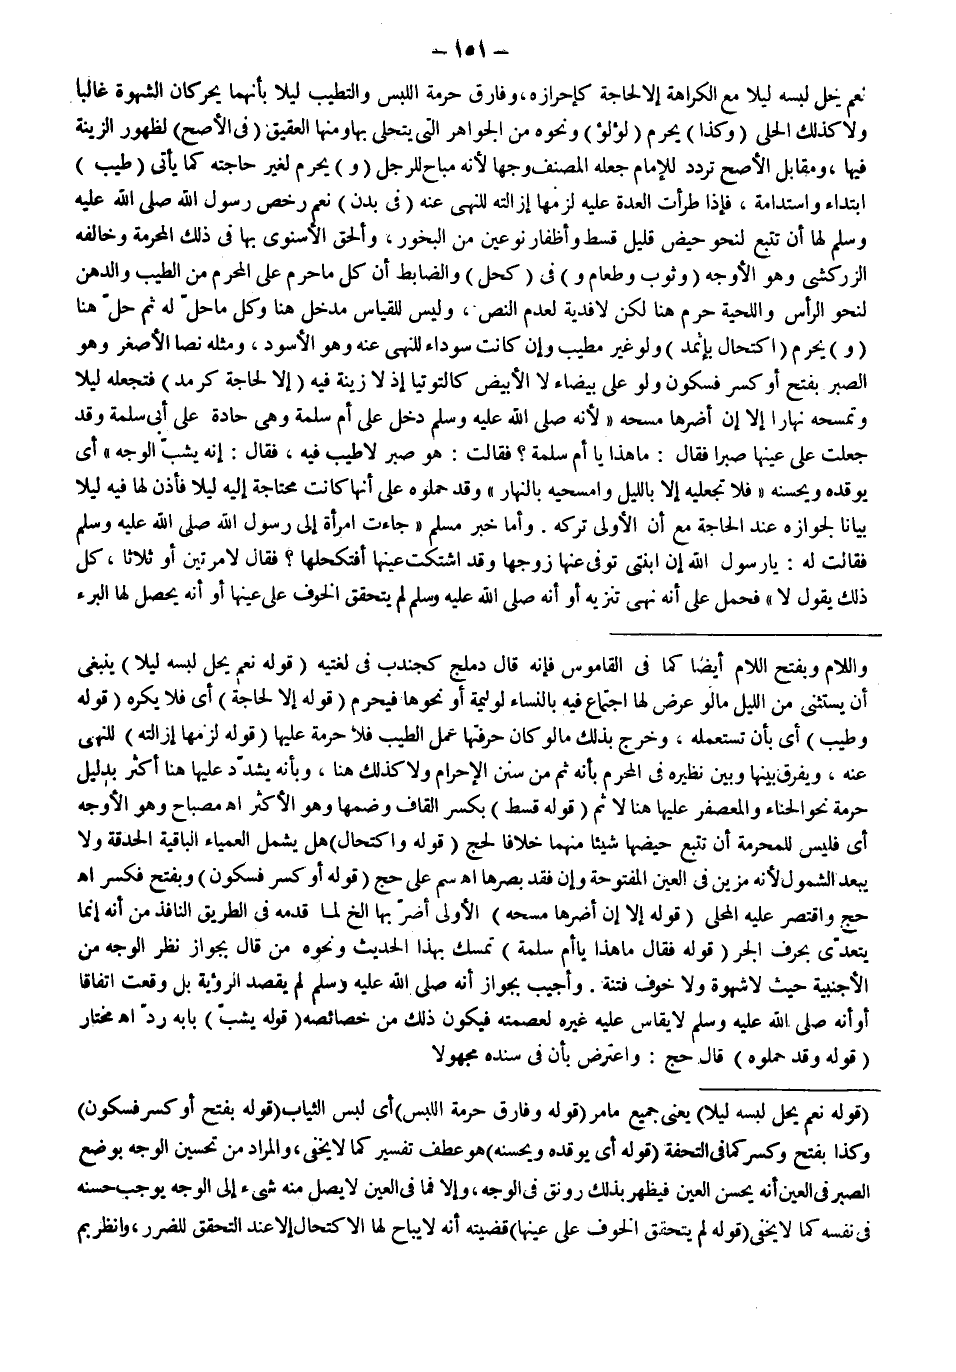 – ١٥١ –
نعم يحل لبسه ليلا مع الكراهة إلا لحاجة كإحرازه، وفارق حرمة اللبس والتطيب ليلا بأنهما يحركان الشهوة غالبا
ولا كذلك الحلى (وكذا) يحرم (لؤلؤ) ونحوه من الجواهر التى يتحلى بها ومنها العقيق (فى الأصح) لظهور الزينة
فيها، ومقابل الأصح تردد للإمام جعله المصنف وجها لأنه مباح للرجل (و) يحرم لغير حاجته كما يأتى (طيب)
ابتداء واستدامة ، فإذا طرأت العدة عليه لزمها إزالته للنهى عنه (فى بدن) نعم رخص رسول الله صلى الله عليه
وسلم لها أن تتبع لنحو حيض قليل قسط وأظفار نوعين من البخور، وألحق الأسنوى بها فى ذلك المحرمة وخالفه
الزركشى وهو الأوجه (وثوب وطعام و) فى (كحل) والضابط أن كل ماحرم على المحرم من الطيب والدهن
لنحو الرأس واللحية حرم هنا لكن لافدية لعدم النص ، وليس للقياس مدخل هنا وكل ماحلّ له ثم حلّ هنا
(و) يحرم (اكتحال بإثمد) ولو غير مطيب وإن كانت سوداء للنهى عنه وهو الأسود ، ومثله نصا الأصفر وهو
الصبر بفتح أو كسر فسكون ولو على بيضاء لا الأبيض كالتوتيا إذ لا زينة فيه (إلا لحاجة كرمد) فتجعله ليلا
وتمسحه نهارا إلا إن أضرها مسحه « لأنه صلى الله عليه وسلم دخل على أم سلمة وهى حادة على أبى سلمة وقد
جعلت على عينها صبرا فقال : ماهذا يا أم سلمة ؟ فقالت : هو صبر لاطيب فيه ، فقال : إنه يشبّ الوجه » أى
يوقده ويحسنه « فلا تجعليه إلا بالليل وامسحيه بالنهار » وقد حملوه على أنها كانت محتاجة إليه ليلا فأذن لها فيه ليلا
بيانا لجوازه عند الحاجة مع أن الأولى تركه . وأما خبر مسلم « جاءت امرأة إلى رسول الله صلى الله عليه وسلم
فقالت له : يارسول الله إن ابنتى توفى عنها زوجها وقد اشتكت عينها أفتكحلها ؟ فقال لا مرتين أو ثلاثا ، كل
ذلك يقول لا » فحمل على أنه نهى تنزيه أو أنه صلى الله عليه وسلم لم يتحقق الخوف على عينها أو أنه يحصل لها البرء
واللام وبفتح اللام أيضا كما فى القاموس فإنه قال دملج كجندب فى لغتيه (قوله نعم يحل لبسه ليلا) ينبغى
أن يستثنى من الليل مالو عرض لها اجتماع فيه بالنساء لوليمة أو نحوها فيحرم (قوله إلا لحاجة) أى فلا يكره (قوله
وطيب) أى بأن تستعمله ، وخرج بذلك مالو كان حرفتها عمل الطيب فلا حرمة عليها (قوله لزمها إزالته) للنهى
عنه ، ويفرق بينها وبين نظيره فى المحرم بأنه ثم من سنن الإحرام ولا كذلك هنا ، وبأنه يشدّد عليها هنا أكثر بدليل
حرمة نحو الحناء والمعصفر عليها هنا لا ثم (قوله قسط) بكسر القاف وضمها وهو الأكثر اه مصباح وهو الأوجه
أى فليس للمحرمة أن تتبع حيضها شيئا منهما خلافا لحج (قوله واكتحال) هل يشمل العمياء الباقية الحدقة ولا
يبعد الشمول لأنه مزين فى العين المفتوحة وإن فقد بصرها اه سم على حج (قوله أو كسر فسكون) وبفتح فكسر اه
حج واقتصر عليه المحلى (قوله إلا إن أضرها مسحه) الأولى أضرّ بها الخ لما قدمه فى الطريق النافذ من أنه إنما
يتعدّى بحرف الجر (قوله فقال ماهذا ياأم سلمة) تمسك بهذا الحديث ونحوه من قال بجواز نظر الوجه من
الأجنبية حيث لاشهوة ولا خوف فتنة . وأجيب بجواز أنه صلى الله عليه وسلم لم يقصد الرؤية بل وقعت اتفاقا
أو أنه صلى الله عليه وسلم لايقاس عليه غيره لعصمته فيكون ذلك من خصائصه (قوله يشبّ) بابه ردّ اه مختار
(قوله وقد حملوه) قال حج : واعترض بأن فى سنده مجهولا
(قوله نعم يحل لبسه ليلا) يعنى جميع مامر (قوله وفارق حرمة اللبس) أى لبس الثياب (قوله بفتح أو كسر فسكون)
وكذا بفتح وكسر كما فى التحفة (قوله أى يوقده ويحسنه) هو عطف تفسير كما لايخفى، والمراد من تحسين الوجه بوضع
الصبر فى العين أنه يحسن العين فيظهر بذلك رونق فى الوجه، وإلا فما فى العين لايصل منه شىء إلى الوجه يوجب حسنه
فى نفسه كما لايخفى (قوله لم يتحقق الخوف على عينها) قضيته أنه لايباح لها الاكتحال إلا عند التحقق للضرر، وانظر بم